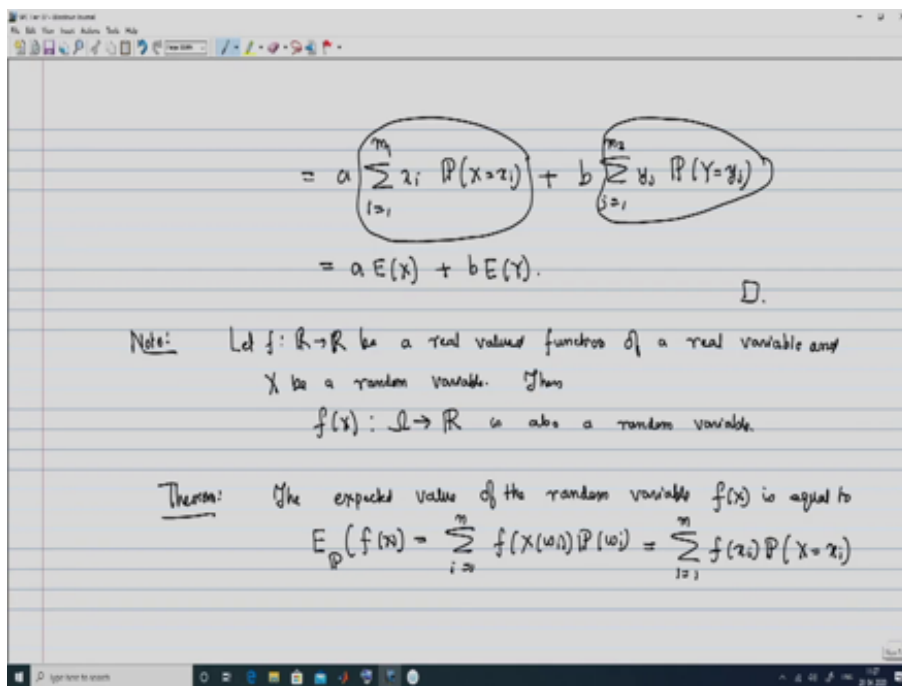 File Edit View Insert Actions Tools Help
= a ∑_{i=1}^{m_1} x_i ℙ(X=x_i) + b ∑_{j=1}^{m_2} y_j ℙ(Y=y_j)
= a E(X) + b E(Y).
□.
Note: Let f: ℝ→ℝ be a real valued function of a real variable and
X be a random variable. Then
f(X) : Ω → ℝ is also a random variable.
Theorem: The expected value of the random variable f(X) is equal to
E_ℙ(f(X) = ∑_{i=1}^{n} f(X(ω_i)) ℙ(ω_i) = ∑_{i=1}^{n} f(x_i) ℙ(X=x_i)
Type here to search